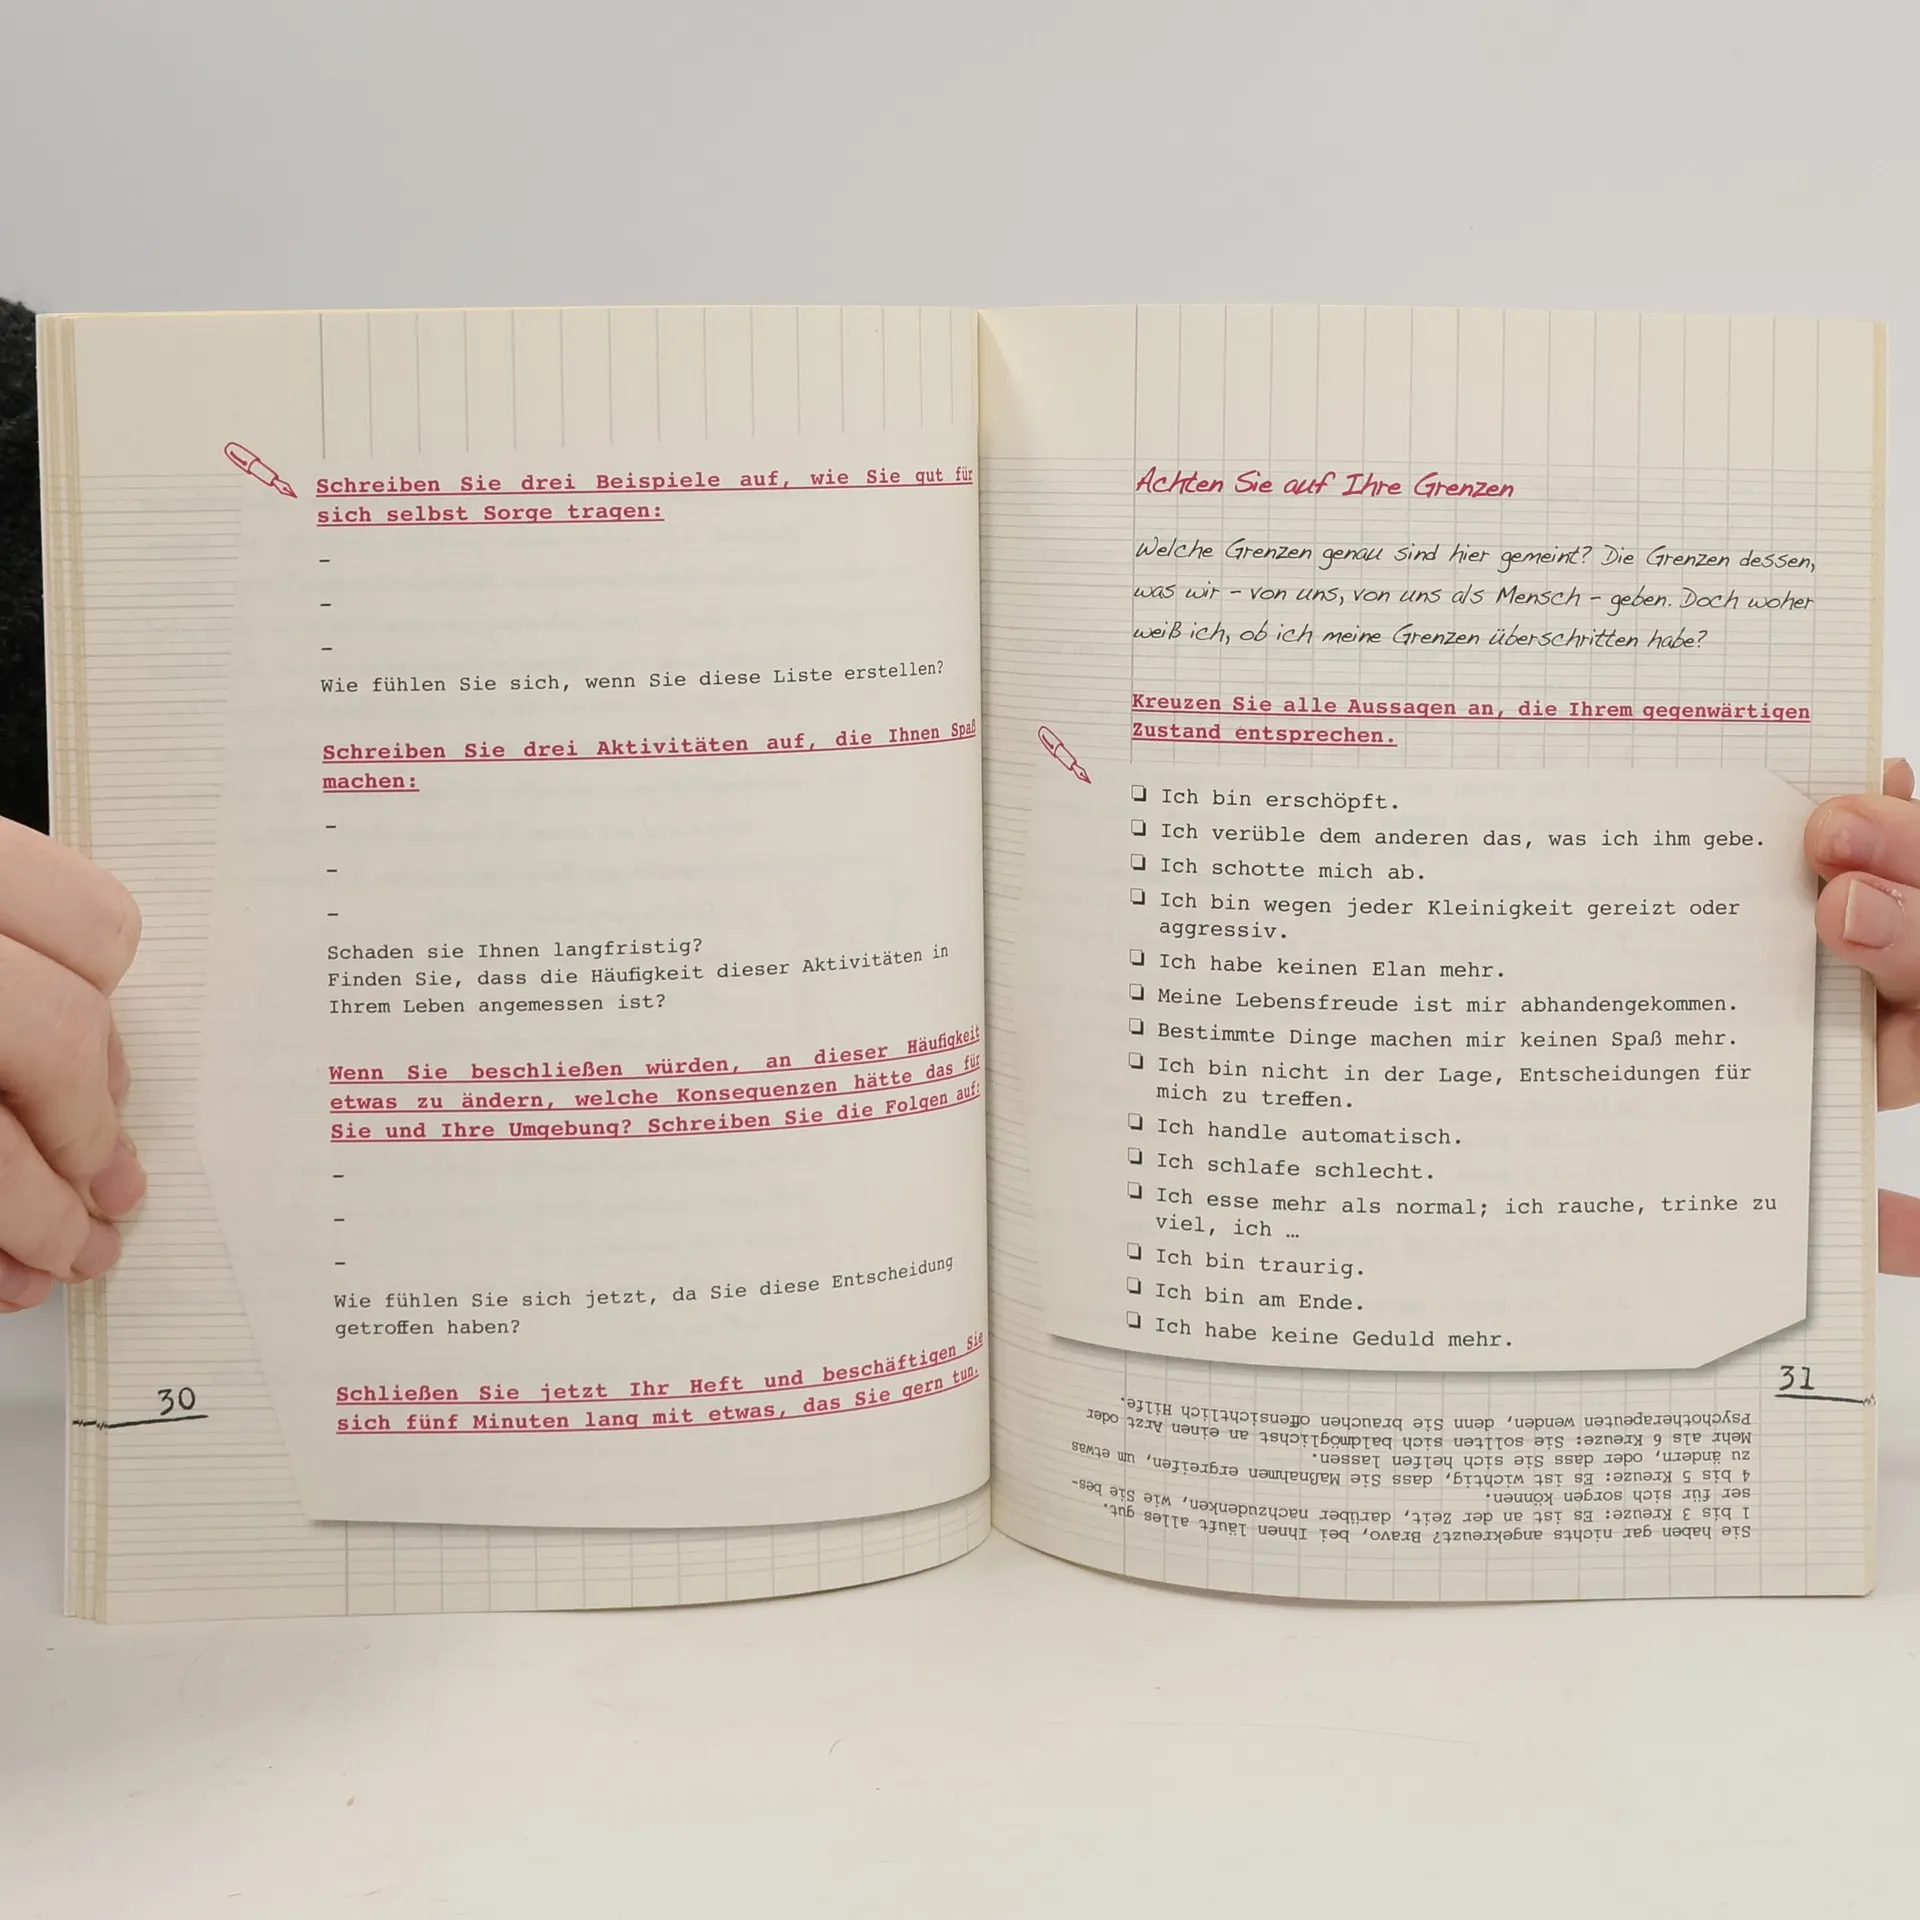 Schreiben Sie drei Beispiele auf, wie Sie gut für
sich selbst Sorge tragen:
–
–
–
Wie fühlen Sie sich, wenn Sie diese Liste erstellen?
Schreiben Sie drei Aktivitäten auf, die Ihnen Spaß
machen:
–
–
–
Schaden sie Ihnen langfristig?
Finden Sie, dass die Häufigkeit dieser Aktivitäten in
Ihrem Leben angemessen ist?
Wenn Sie beschließen würden, an dieser Häufigkeit
etwas zu ändern, welche Konsequenzen hätte das für
Sie und Ihre Umgebung? Schreiben Sie die Folgen auf:
–
–
–
Wie fühlen Sie sich jetzt, da Sie diese Entscheidung
getroffen haben?
Schließen Sie jetzt Ihr Heft und beschäftigen Sie
sich fünf Minuten lang mit etwas, das Sie gern tun.
30
Achten Sie auf Ihre Grenzen
Welche Grenzen genau sind hier gemeint? Die Grenzen dessen,
was wir – von uns, von uns als Mensch – geben. Doch woher
weiß ich, ob ich meine Grenzen überschritten habe?
Kreuzen Sie alle Aussagen an, die Ihrem gegenwärtigen
Zustand entsprechen.
❏ Ich bin erschöpft.
❏ Ich verüble dem anderen das, was ich ihm gebe.
❏ Ich schotte mich ab.
❏ Ich bin wegen jeder Kleinigkeit gereizt oder
aggressiv.
❏ Ich habe keinen Elan mehr.
❏ Meine Lebensfreude ist mir abhandengekommen.
❏ Bestimmte Dinge machen mir keinen Spaß mehr.
❏ Ich bin nicht in der Lage, Entscheidungen für
mich zu treffen.
❏ Ich handle automatisch.
❏ Ich schlafe schlecht.
❏ Ich esse mehr als normal; ich rauche, trinke zu
viel, ich …
❏ Ich bin traurig.
❏ Ich bin am Ende.
❏ Ich habe keine Geduld mehr.
31
Sie haben gar nichts angekreuzt? Bravo, bei Ihnen läuft alles gut.
1 bis 3 Kreuze: Es ist an der Zeit, darüber nachzudenken, wie Sie bes-
ser für sich sorgen können.
4 bis 5 Kreuze: Es ist wichtig, dass Sie Maßnahmen ergreifen, um etwas
zu ändern, oder dass Sie sich helfen lassen.
Mehr als 6 Kreuze: Sie sollten sich baldmöglichst an einen Arzt oder
Psychotherapeuten wenden, denn Sie brauchen offensichtlich Hilfe.